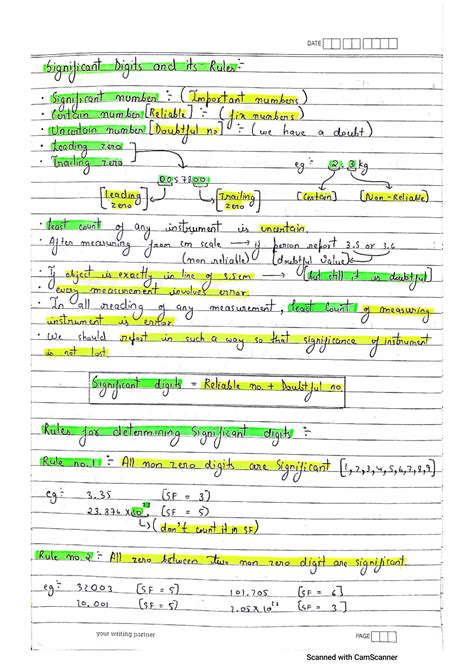 DATE
Significant Digits and its Rules :-
• Significant number :- (Important numbers)
• Certain number [Reliable] :- (fix numbers)
• Uncertain number [Doubtful no] :- (we have a doubt)
• Leading zero
• Trailing zero
eg :- 2.3 kg
0057800
[Leading zero] [Trailing zero] [Certain] [Non-Reliable]
• least count of any instrument is uncertain.
• After measuring from cm scale → if person report 3.5 or 3.6
(non reliable) (doubtful value)
• If object is exactly in line of 3.5cm → (but still it is doubtful)
• every measurement involves error.
• In all reading of any measurement, least count of measuring
instrument is error
• We should report in such a way so that significance of instrument
is not lost.
Significant digits = Reliable no. + Doubtful no
Rules for determining Significant digits :-
Rule no.1 :- All non zero digits are Significant [1,2,3,4,5,6,7,8,9]
eg :- 3.35 [SF = 3]
23.876 × 10 [SF = 5]
(don't count it in SF)
Rule no.2 :- All zero between two non zero digit are significant.
eg :- 32003 [SF = 5] 101.205 [SF = 6]
20.001 [SF = 5] 2.05 × 10 [SF = 3]
your writing partner
PAGE
Scanned with CamScanner